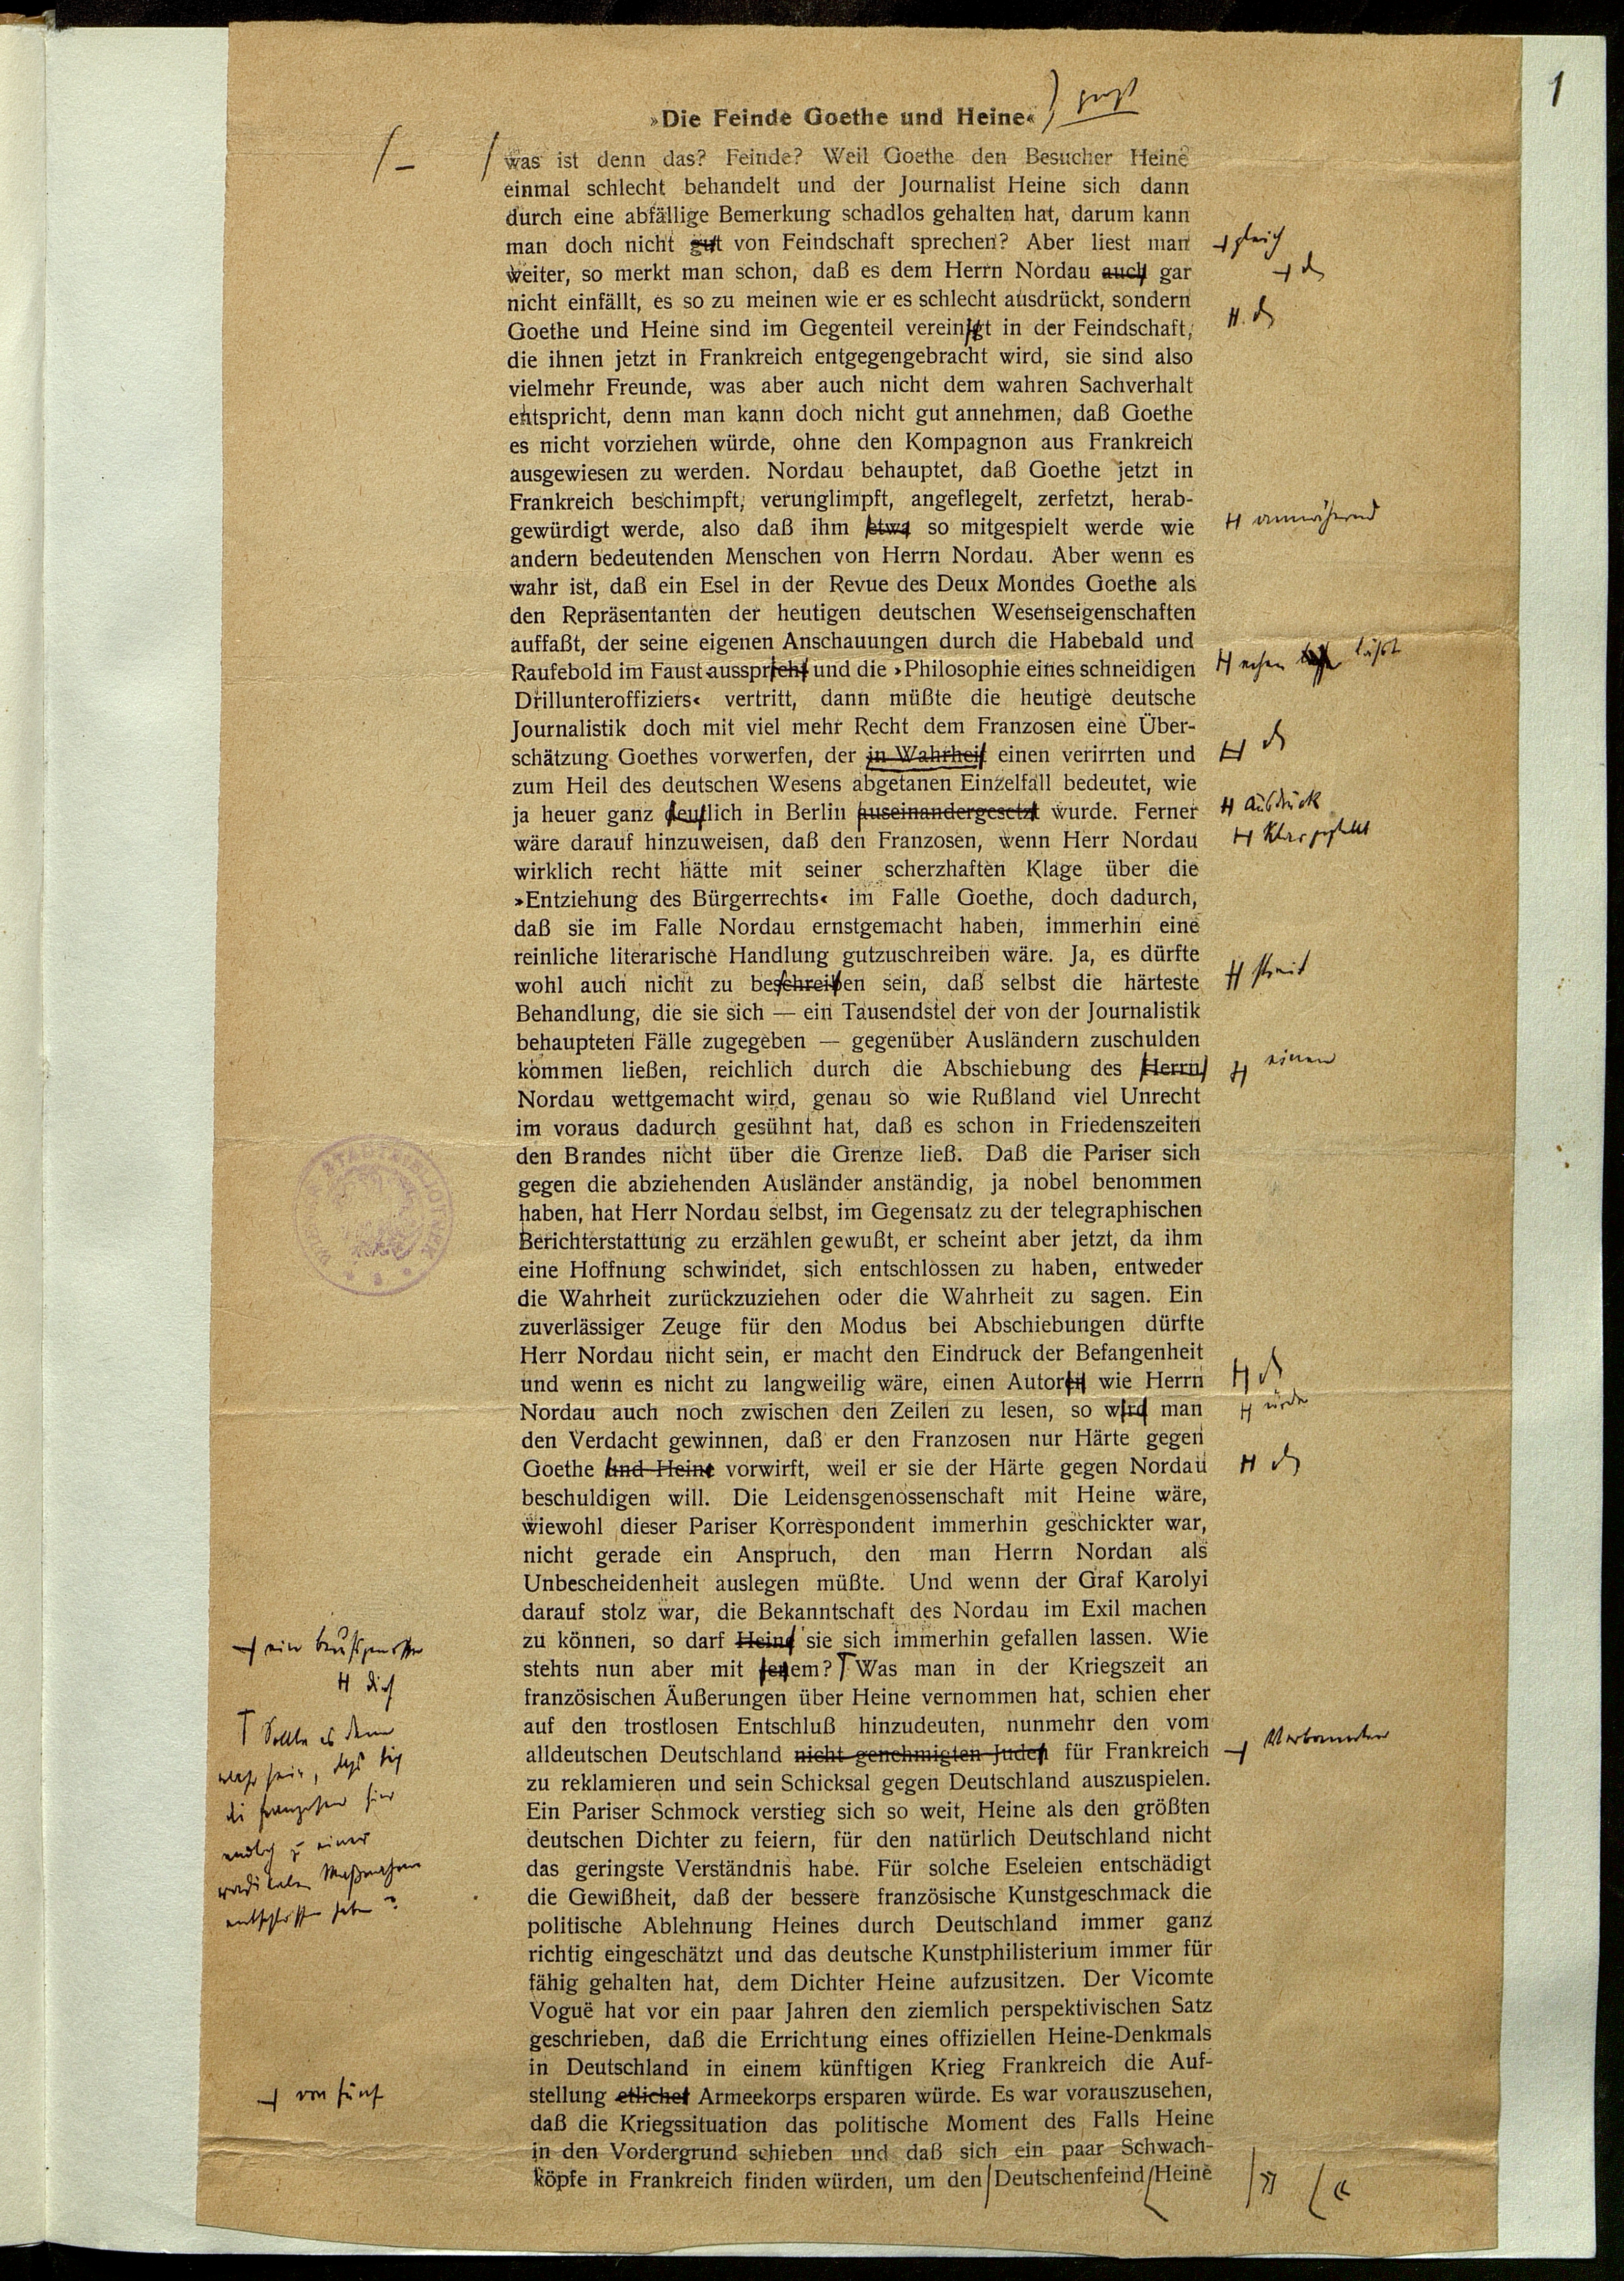 1
»Die Feinde Goethe und Heine«
was ist denn das? Feinde? Weil Goethe den Besucher Heine
einmal schlecht behandelt und der Journalist Heine sich dann
durch eine abfällige Bemerkung schadlos gehalten hat, darum kann
man doch nicht gut von Feindschaft sprechen? Aber liest man
gleich
weiter, so merkt man schon, daß es dem Herrn Nordau auch gar
nicht einfällt, es so zu meinen wie er es schlecht ausdrückt, sondern
Goethe und Heine sind im Gegenteil vereinigt in der Feindschaft,
die ihnen jetzt in Frankreich entgegengebracht wird, sie sind also
vielmehr Freunde, was aber auch nicht dem wahren Sachverhalt
entspricht, denn man kann doch nicht gut annehmen, daß Goethe
es nicht vorziehen würde, ohne den Kompagnon aus Frankreich
ausgewiesen zu werden. Nordau behauptet, daß Goethe jetzt in
Frankreich beschimpft, verunglimpft, angeflegelt, zerfetzt, herab-
gewürdigt werde, also daß ihm etwa so mitgespielt werde wie
annähernd
andern bedeutenden Menschen von Herrn Nordau. Aber wenn es
wahr ist, daß ein Esel in der Revue des Deux Mondes Goethe als
den Repräsentanten der heutigen deutschen Wesenseigenschaften
auffaßt, der seine eigenen Anschauungen durch die Habebald und
Raufebold im Faust ausspricht und die »Philosophie eines schneidigen
echen läßt
Drillunteroffiziers« vertritt, dann müßte die heutige deutsche
Journalistik doch mit viel mehr Recht dem Franzosen eine Über-
schätzung Goethes vorwerfen, der in Wahrheit einen verirrten und
zum Heil des deutschen Wesens abgetanen Einzelfall bedeutet, wie
ja heuer ganz deutlich in Berlin auseinandergesetzt wurde. Ferner
ausdrück
klargestellt
wäre darauf hinzuweisen, daß den Franzosen, wenn Herr Nordau
wirklich recht hätte mit seiner scherzhaften Klage über die
»Entziehung des Bürgerrechts« im Falle Goethe, doch dadurch,
daß sie im Falle Nordau ernstgemacht haben, immerhin eine
reinliche literarische Handlung gutzuschreiben wäre. Ja, es dürfte
wohl auch nicht zu beschreiben sein, daß selbst die härteste
streit
Behandlung, die sie sich — ein Tausendstel der von der Journalistik
behaupteten Fälle zugegeben — gegenüber Ausländern zuschulden
kommen ließen, reichlich durch die Abschiebung des Herrn
einen
Nordau wettgemacht wird, genau so wie Rußland viel Unrecht
im voraus dadurch gesühnt hat, daß es schon in Friedenszeiten
den Brandes nicht über die Grenze ließ. Daß die Pariser sich
gegen die abziehenden Ausländer anständig, ja nobel benommen
haben, hat Herr Nordau selbst, im Gegensatz zu der telegraphischen
Berichterstattung zu erzählen gewußt, er scheint aber jetzt, da ihm
eine Hoffnung schwindet, sich entschlossen zu haben, entweder
die Wahrheit zurückzuziehen oder die Wahrheit zu sagen. Ein
zuverlässiger Zeuge für den Modus bei Abschiebungen dürfte
Herr Nordau nicht sein, er macht den Eindruck der Befangenheit
und wenn es nicht zu langweilig wäre, einen Autoren wie Herrn
Nordau auch noch zwischen den Zeilen zu lesen, so wird man
ürde
den Verdacht gewinnen, daß er den Franzosen nur Härte gegen
Goethe und Heine vorwirft, weil er sie der Härte gegen Nordau
beschuldigen will. Die Leidensgenossenschaft mit Heine wäre,
wiewohl dieser Pariser Korrespondent immerhin geschickter war,
nicht gerade ein Anspruch, den man Herrn Nordan als
Unbescheidenheit auslegen müßte. Und wenn der Graf Karolyi
darauf stolz war, die Bekanntschaft des Nordau im Exil machen
zu können, so darf Heine sie sich immerhin gefallen lassen. Wie
ein Berufsgenosse
stehts nun aber mit jenem? Was man in der Kriegszeit an
dies
Sollte es denn
wahr sein, daß sich
die Franzosen hier
endlich zu einer
radikalen Maßnahme
entschlossen haben?
französischen Äußerungen über Heine vernommen hat, schien eher
auf den trostlosen Entschluß hinzudeuten, nunmehr den vom
alldeutschen Deutschland nicht genehmigten Juden für Frankreich
Verbannten
zu reklamieren und sein Schicksal gegen Deutschland auszuspielen.
Ein Pariser Schmock verstieg sich so weit, Heine als den größten
deutschen Dichter zu feiern, für den natürlich Deutschland nicht
das geringste Verständnis habe. Für solche Eseleien entschädigt
die Gewißheit, daß der bessere französische Kunstgeschmack die
politische Ablehnung Heines durch Deutschland immer ganz
richtig eingeschätzt und das deutsche Kunstphilisterium immer für
fähig gehalten hat, dem Dichter Heine aufzusitzen. Der Vicomte
Voguë hat vor ein paar Jahren den ziemlich perspektivischen Satz
geschrieben, daß die Errichtung eines offiziellen Heine-Denkmals
in Deutschland in einem künftigen Krieg Frankreich die Auf-
stellung etlicher Armeekorps ersparen würde. Es war vorauszusehen,
von fünf
daß die Kriegssituation das politische Moment des Falls Heine
in den Vordergrund schieben und daß sich ein paar Schwach-
köpfe in Frankreich finden würden, um den Deutschenfeind Heine
» «
WIENER STADTBIBLIOTHEK